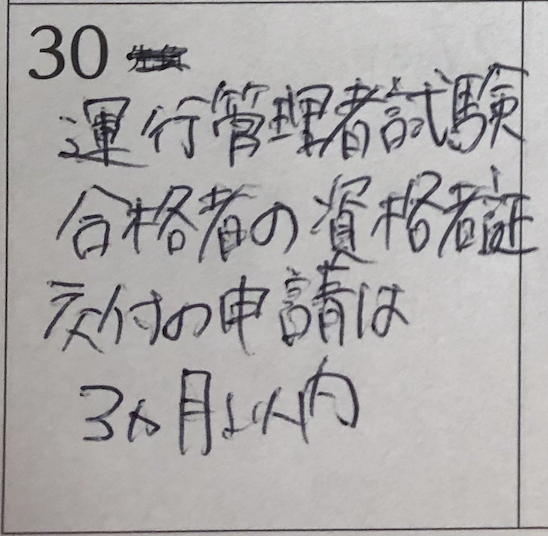 30 先負
運行管理者試験
合格者の資格者証
交付の申請は
3ヵ月以内